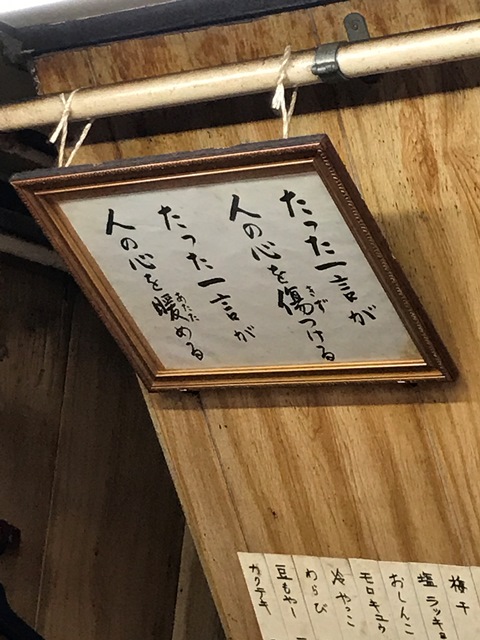 たった一言が
人の心を傷つける
きず
たった一言が
人の心を暖める
あたた
梅干
塩ラッキョ
おしんこ
モロキュウ
冷やっこ
わらび
豆もやし
カクテキ